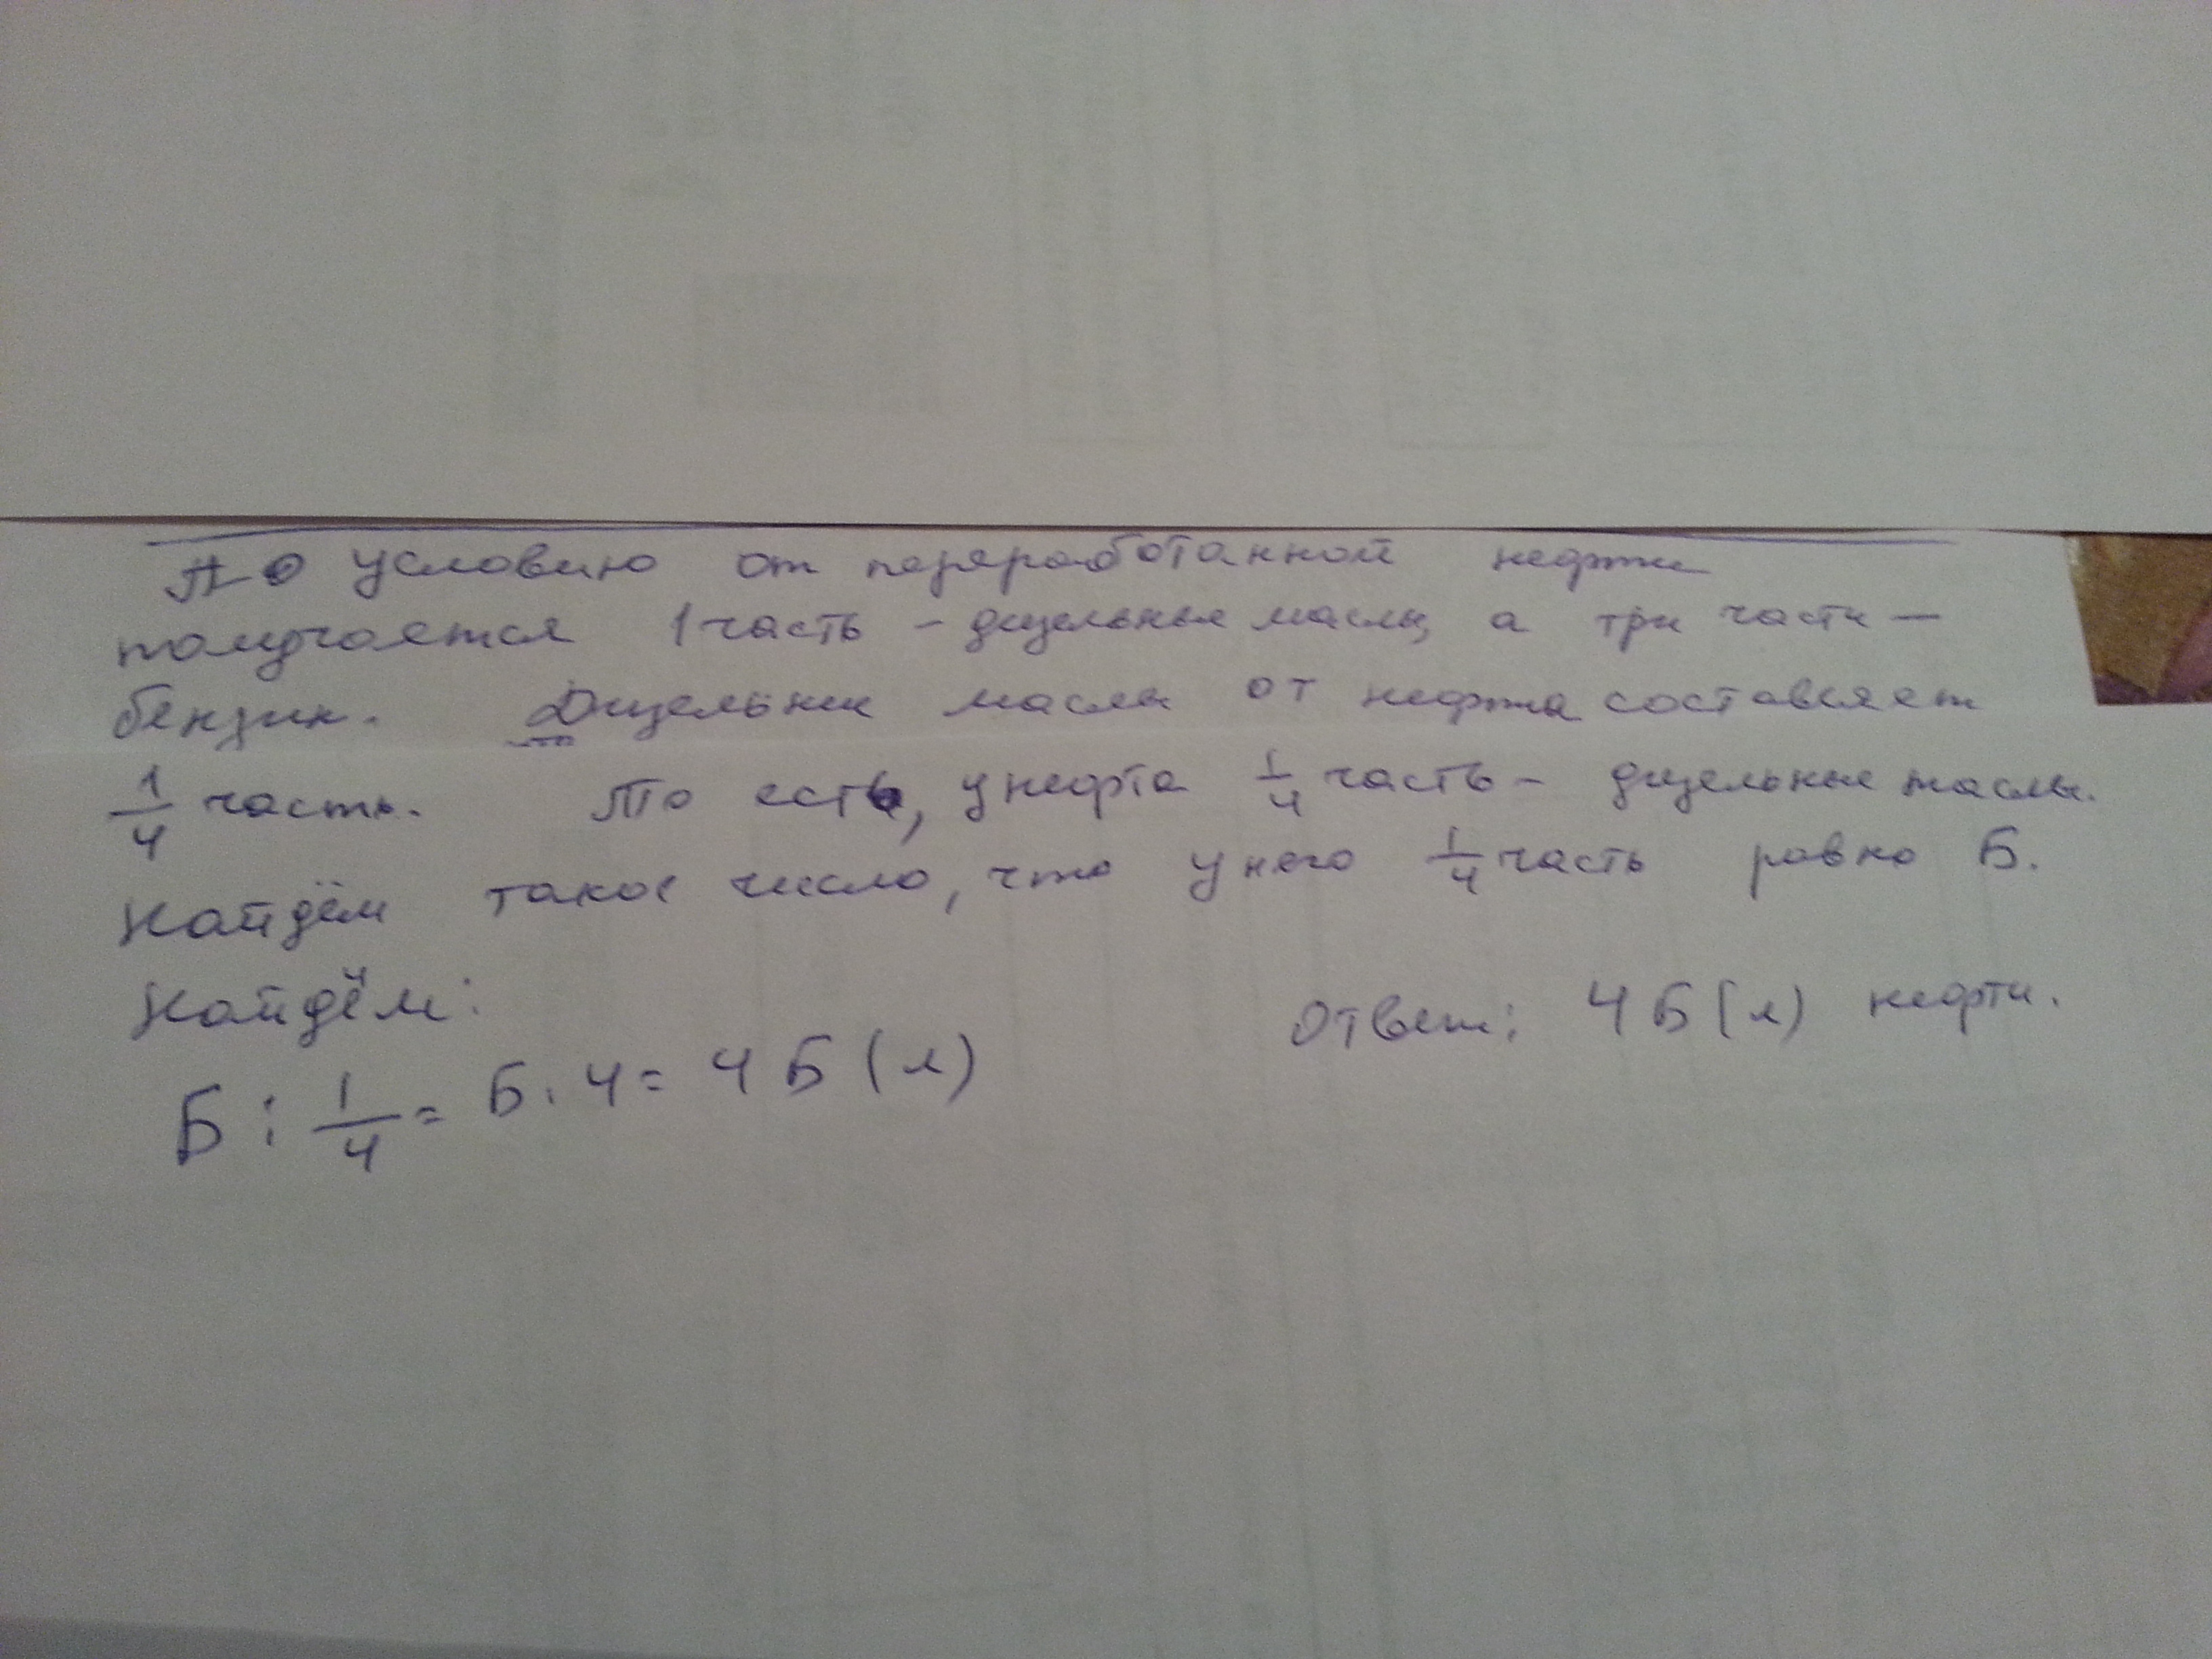 По условию от переработанной нефти
получается 1 часть - дизельные маслы, а три части —
бензин. Дизельные маслы от нефта составляет
1/4 часть. То есть, у нефта 1/4 часть - дизельные маслы.
Найдём такое число, что у него 1/4 часть равно Б.
Найдём:
Ответ: 4Б (л) нефти.
Б : 1/4 = Б · 4 = 4Б (л)